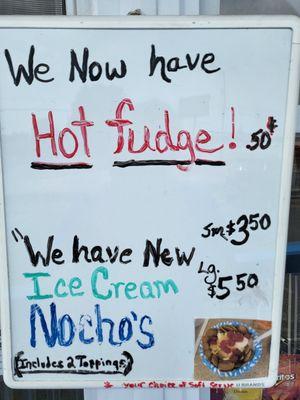 We Now have
Hot fudge! .50¢
"We have New
Sm $3.50
Ice Cream
Lg. $5.50
Nocho's
(Includes 2 Toppings)
* your choice of Soft Serve